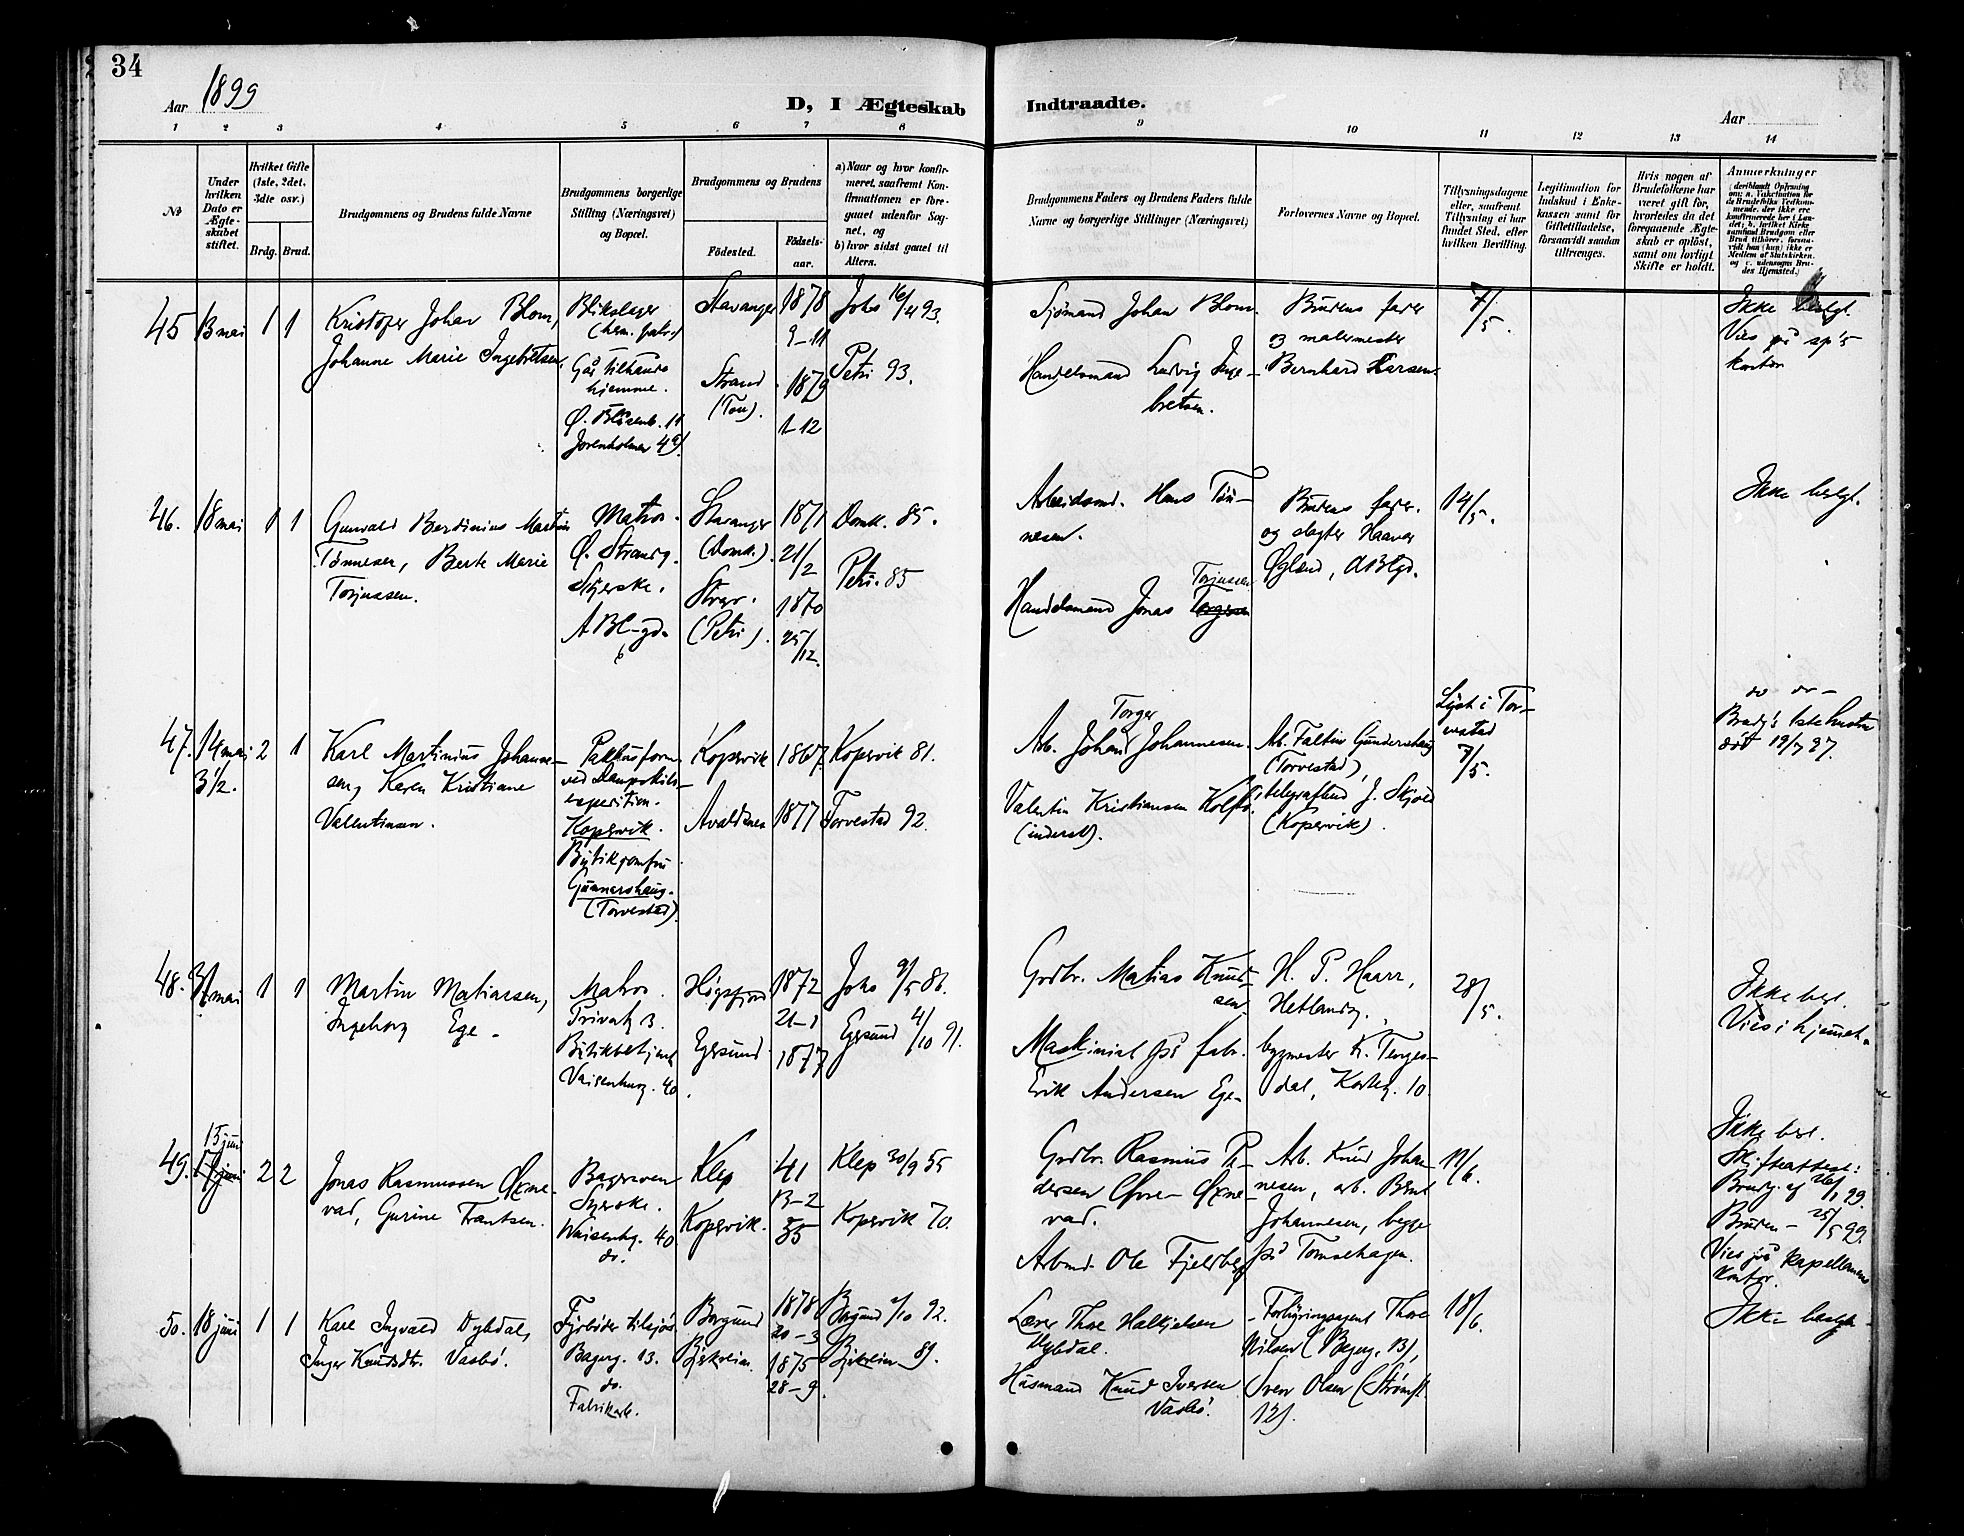 34
Aar 1899
D, I Ægteskab Indtraadte.
Aar
1 2 3 4 5 6 7 8 9 10 11 12 13 14
No
Under hvilken Dato er Ægteskabet stiftet.
Hvilket Gifte (1ste, 2det, 3die osv.)
Brdg. Brud.
Brudgommens og Brudens fulde Navne
Brudgommens borgerlige Stilling (Næringsvei) og Bopæl.
Brudgommens og Brudens
Födested.
Födselsaar.
a) Naar og hvor konfirmeret, saafremt Konfirmationen er foregaaet udenfor Sognet, og
b) hvor sidst gaaet til Alters.
Brudgommens Faders og Brudens Faders fulde Navne og borgerlige Stillinger (Næringsvei)
Forlovernes Navne og Bopæl.
Tillysningsdagene eller, saafremt Tillysning ei har fundet Sted, efter hvilken Bevilling.
Legitimation for Indskud i Enkekassen samt for Giftetilladelse, forsaavidt saadan tiltrænges.
Hvis nogen af Brudefolkene har været gift för, hvorledes da det foregaaende Ægteskab er oplöst, samt om lovligt Skifte er holdt.
Anmerkninger
45 13 mai 1 1
Kristofer Johan Blom,
Johanne Marie Ingebretsen.
Blikslager
Går tilhaande
hjemme.
Stavanger 1878
9-11
Strand
(Tou).
1879
1-12
Johs 16/4 93.
Petri 93.
Sjömand Johan Blom.
Handelsmand Ludvig Inge-
bretsen.
Brudens fader
og malermester
Bernhard Larsen.
7/5.
Ikke beslgt.
Vies på sp's
kontor
46. 18 mai 1 1
Gunvald Berdinius Martin
Tönnesen, Berte Marie
Torjussen.
Matros.
Ø. Strandg.
Syerske.
Stavanger
(Domk.).
1871
21/2
Stvgr.
(Petri).
1870
25/12.
Domk. 85.
Petri. 85
Arbeidsmd. Hans Tön-
nesen.
Handelsmand Jonas Torjussen
Brudens fader.
og slagter Haaver
Øglænd, ABlgd.
14/5.
Ikke beslgt.
47. 14 mai 2 1
3 1/2.
Karl Martinius Johanne-
sen, Karen Kristiane
Valentinsen.
Pakhusform.
ved Dampskibs-
expedition.
Kopervik.
Butikjomfru
Gunnarshaug.
(Torvestad).
Kopervik 1867.
Avaldsnes 1877
Kopervik 81.
Torvestad 92.
Torger
Arb. Johan Johannesen.
Valentin Kristiansen Kolstø
(inderst).
Arb. Faltin Gundershaug
(Torvestad),
telegrafbud J. Skjold
(Kopervik).
Lyst i Tor-
vestad
7/5.
do do -
Brudg's 1ste hustru
död 19/7 97.
48. 31 mai 1 1
Martin Matiassen,
Ingeborg Ege.
Matros.
Privatg 3.
Butikbetjent
Vaisenhusg. 40.
Högsfjord 1872
21-1
Egersund 1877
Johs 9/5 86.
Egersund 4/10 91.
Grdbr. Matias Knud-
sen.
Maskinist på fabr.
Erik Andersen Ege.
H. P. Haarr,
Hetlandsg.,
bygmester K. Tenges-
dal, Karlsg. 10.
28/5.
Ikke besl.
Vies i hjemmet.
49. 15 juni 2 2
Jonas Rasmussen Øxne-
vad, Gurine Frantsen.
Bagersvend
Syerske.
Waisenhg. 40
do.
Klep 41
13-2
Kopervik. 55
Klep 30/9 55
Kopervik 70.
Grdbr. Rasmus Pe-
dersen Øvre-Øxne-
vad.
Arbmd. Ole Fjeldberg
Arb. Knud Johan-
nesen, arb. Bernt
Johannesen, begge
på Tomsehagen.
11/6.
Ikke besl.
Skifteattest:
Brudg. af 26/1 99.
Bruden - 25/5 99.
Vies på kapellanens
kontor.
50. 18 juni 1 1
Karl Ingvald Dybdal,
Inger Knudsdtr. Vasbö.
Fyrböder tilsjös
Bagerg. 13.
do.
Fabrikarb.
Borgund 1878
20-3
Bjerkreim 1875
28-9.
Borgund 2/10 92.
Bjerkreim 89.
Lærer Thore Halkjelsen
Dybdal.
Husmand Knud Iversen
Vasbö.
Forhyringsagent Thore
Nilsen (Bagerg. 13),
Sven Olsen (Strömst.
12).
18/6.
Ikke beslgt.